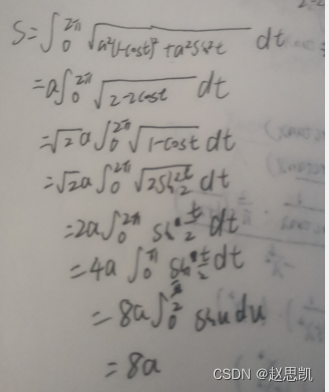 S=∫₀^{2π} √(a²(1-cost)²+a²sin²t) dt
=a∫₀^{2π} √(2-2cost) dt
=√2a∫₀^{2π} √(1-cost) dt
=√2a∫₀^{2π} √(2sin²t/2) dt
=2a∫₀^{2π} sin t/2 dt
=4a∫₀^{π} sin t/2 dt
=8a∫₀^{π/2} sinu du
=8a
CSDN @赵思凯